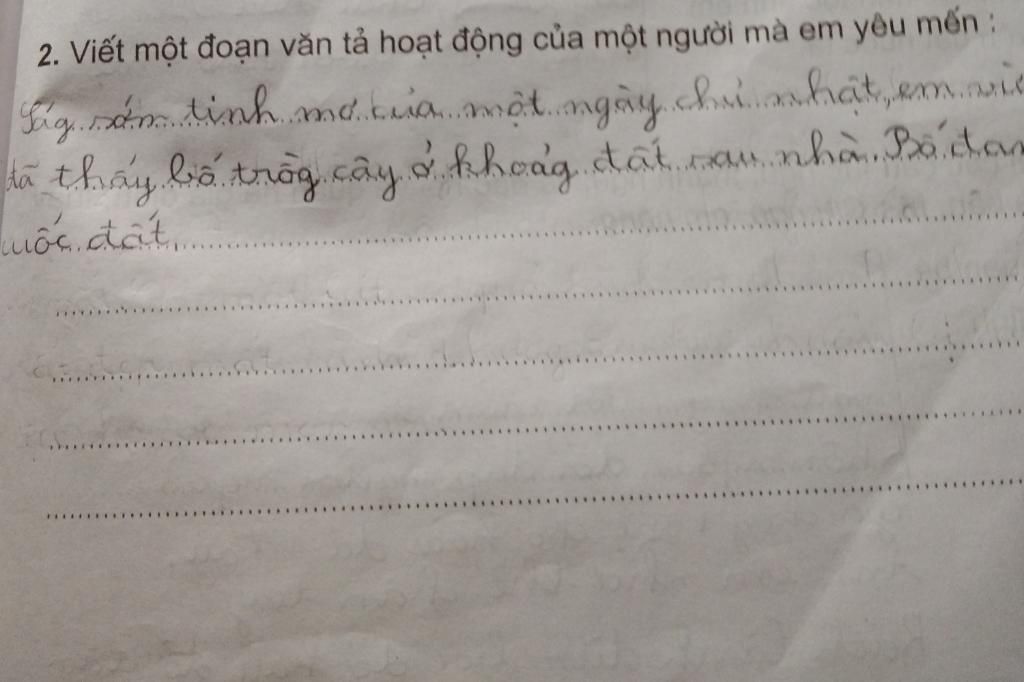 2. Viết một đoạn văn tả hoạt động của một người mà em yêu mến :
Ság sớm tinh mơ của một ngày chủ nhật, em
đã thấy bố trồg cây ở khoảg đất sau nhà. Bố
cuốc đất,